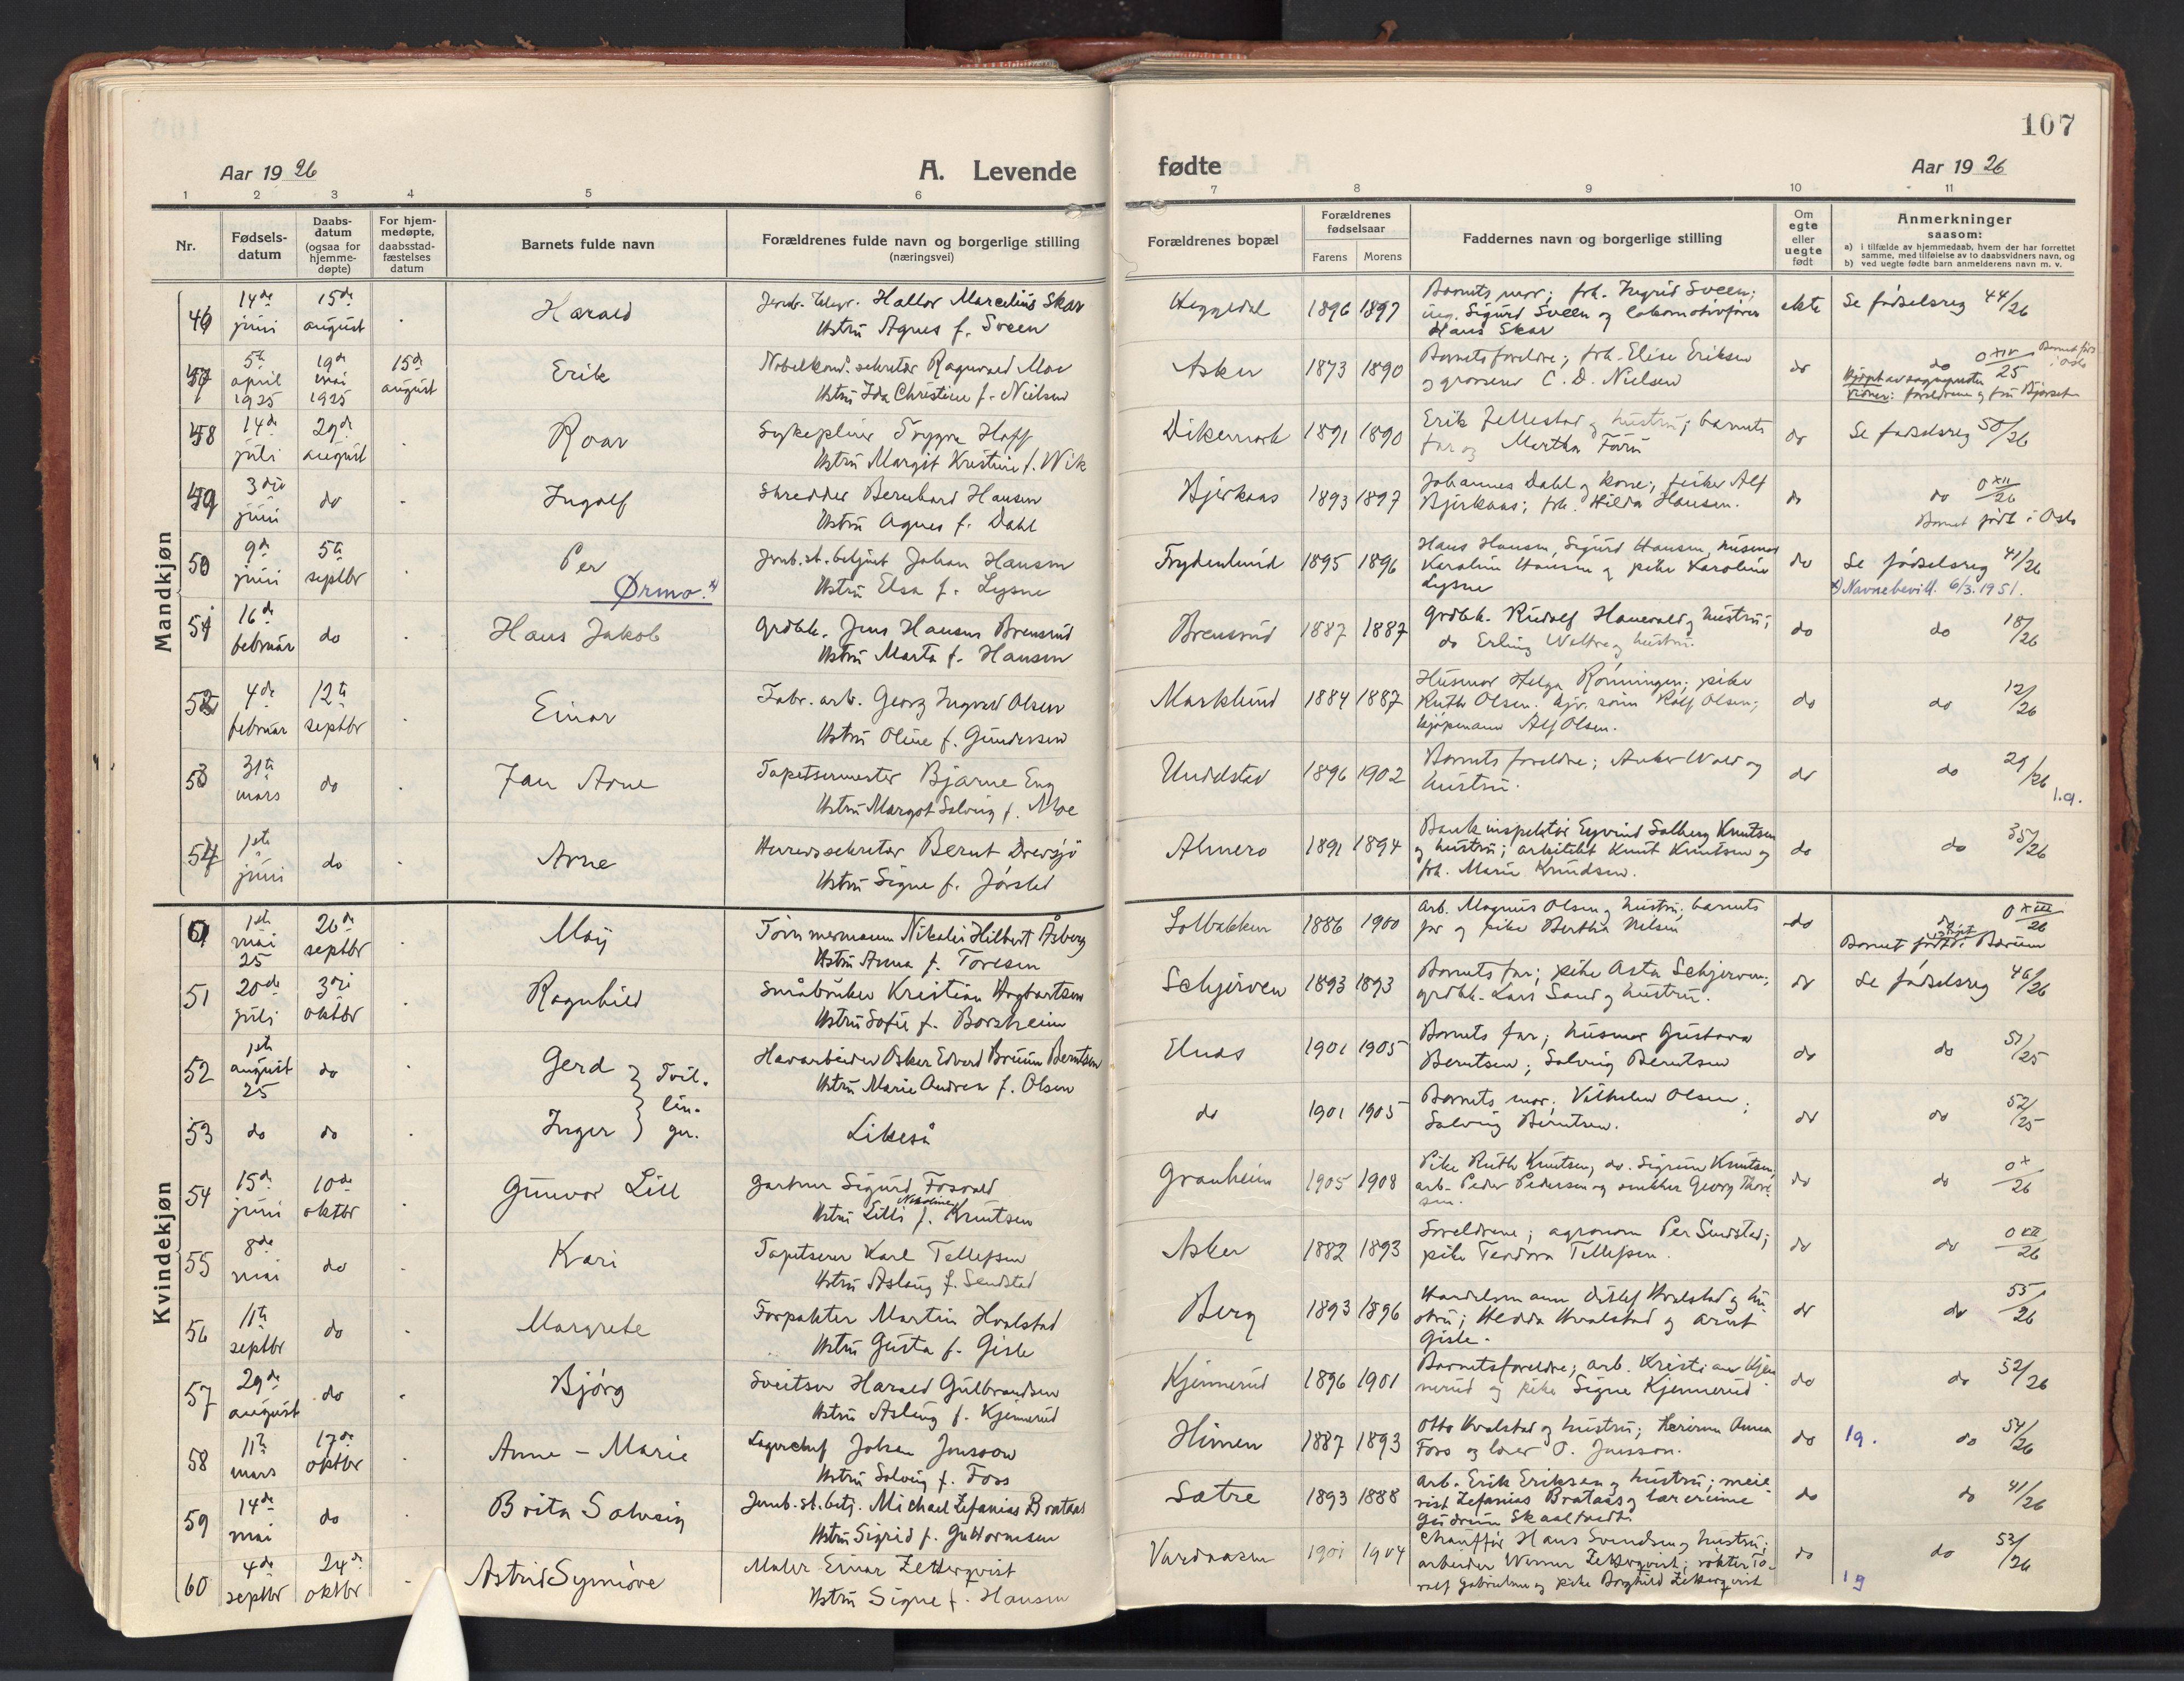 107
Aar 1926
A. Levende
fødte
Aar 1926
1 2 3 4 5 6 7 8 9 10 11
Nr.
Fødsels-
datum
Daabs-
datum
(ogsaa for
hjemme-
døpte)
For hjem-
medøpte,
daabsstad-
fæstelses
datum
Barnets fulde navn
Forældrenes fulde navn og borgerlige stilling
(næringsvei)
Forældrenes bopæl
Forældrenes
fødselsaar
Farens Morens
Faddernes navn og borgerlige stilling
Om
egte
eller
uegte
født
Anmerkninger
saasom:
a) i tilfælde av hjemmedaab, hvem der har forrettet
samme, med tilføielse av to daabsvidners navn, og
b) ved uegte fødte barn anmelderens navn m. v.
Mandkjøn
46 14de juni 15de august Harald
Hallor Marcelius Skar
Hstru Agnes f. Sveen
Heggedal 1896 1897
Barnets mor; frk. Ingrid Sveen;
ing. Sigurd Sveen og lokomotivfører
Hans Skar
ekte Se fødselsreg 44/26
47 5te april 1925 19de mai 1925 15de august Erik
Nobelkom. sekretær Ragnvald Moe
Hstru Ida Christine f. Nielsen
Asker 1873 1890
Barnets foreldre; frk. Elise Eriksen
og grosserer C. D. Nielsen
do do 0 XIV/25 Barnet født i Oslo
Vidner: foreldrene og fru
48 14de juli 29de august Roar
Sykepleier Trygve Hoff
Hstru Margit Kristine f. Wik
Dikemark 1891 1890
Erik Jellestad og hustru; barnets
far og Martha
do Se fødselsreg 50/26
49 3die juni do Ingolf
Skredder Bernhard Hansen
Hstru Agnes f. Dahl
Bjerkaas 1893 1897
Johannes Dahl og kone; fisker Alf
Bjerkaas; frk. Hilda Hansen.
do do 0 XII/26
Barnet født i Oslo
50 9de juni 5te septbr Per
Ørmo. x)
Jernb.st.betjent Johan Hansen
Hstru Elsa f. Lysne
Frydenlund 1895 1896
Hans Hansen, Sigurd Hansen, husmor
Karoline Hansen og pike Karoline
Lysne
do Se fødselsreg 41/26
x) Navnebevill. 6/3.1951.
51 16de februar do Hans Jakob
Grdbk. Jens Hansen Brensrud
Hstru Marta f. Hansen
Brensrud 1887 1887
Grdbk. Rudolf Hanevold og hustru;
do Erling Wettre og hustru.
do do 18/26
52 4de februar 12te septbr Einar
Fabr. arb. Georg Ingvard Olsen
Hstru Oline f. Gundersen
Marklund 1884 1887
Husmor Helga Rønningen; pike
Ruth Olsen. Rolf Olsen;
kjøpmann Alf Olsen.
do do 12/26
53 31te mars do Jan Arne
Tapetserermester Bjarne Eng
Hstru Margot Solveig f. Moe
Unddstad 1896 1902
Barnets foreldre; Anker Wold og
hustru.
do do 29/26
1.9.
54 1ste juni do Arne
Herredssekretær Bernt Drevsjø
Hstru Signe f. Jørstad
Almero 1891 1894
Bankinspektør Eyvind Solberg Knutsen
og hustru; arkitekt Knut Knutsen og
frk. Marie Knudsen.
do do 35/26
Kvindekjøn
1ste mai 25 26de septbr May
Tømmermann Nikolai Hilbert Åsberg
Hstru Anna f. Toresen
Solbakken 1886 1900
Arb. Magnus Olsen og hustru; barnets
far og pike Bertha Nilsen
do do 0 XIII/26
Barnet født i Bærum
51 20de juli 3die oktbr Ragnhild
Småbruker Kristian Hogbartsen
Hstru Sofie f. Borsheim
Schjerven 1893 1893
Barnets far; pike Asta Schjerven;
grdbk. Lars Sand og hustru.
do Se fødselsreg 46/26
52 1ste august 25 do Gerd } Tvil-
Havarbeider Oskar Edvard Bruun Berntsen
Hstru Marie Andrea f. Olsen
Elnes 1901 1905
Barnets far; husmor Gustava
Berntsen; Solveig Berntsen
do do 51/25
53 do do Inger } lin-
ger.
Likeså
do 1901 1905
Barnets mor; Vilhelm Olsen;
Solveig Berntsen.
do do 52/25
54 15de juni 10de oktbr Gunvor Lill
Gartner Sigurd Fosvold
Hstru Lilli Nikoline f. Knutsen
Granheim 1905 1908
Pike Ruth Knutsen, do. Sigrun Knutsen;
arb. Peder Pedersen og snekker Georg Thore-
sen.
do do 0 X/26
55 8de mai do Kari
Tapetserer Karl Tellefsen
Hstru Aslaug f. Sendstad
Asker 1882 1893
Foreldrene; agronom Per Sendstad;
pike Teodora Tellefsen.
do do 0 XII/26
56 11te septbr do Margrete
Forpakter Martin Hvalstad
Hstru Gusta f. Gisle
Berg 1893 1896
Handelsmann Ditlef Hvalstad og hu-
stru; Hedda Hvalstad og Arnt
Gisle.
do do 55/26
57 29de august do Bjørg
Sveitser Harald Gulbrandsen
Hstru Aslaug f. Kjennerud
Kjennerud 1896 1901
Barnets foreldre; arb. Kristian Kjen-
nerud og pike Signe Kjennerud
do do 52/26
58 11te mars 17de oktbr Anne-Marie
Lagerchef Johan Jonsson
Hstru Solveig f. Foss
Hiinen 1887 1893
Otto Hvalstad og hustru; Anna
Foss og O. Jonsson.
do 19. do 54/26
59 14de mai do Brita Solveig
Jernb.st.betj. Michael Zefanias Brataas
Hstru Sigrid f. Guttormsen
Sætre 1893 1888
Arb. Erik Eriksen og hustru; meie-
rist Zefanias Brataas og lærerinne
Gudrun Skaaltveit.
do do 41/26
60 4de septbr 24de oktbr Astrid Synnøve
Maler Einar Zetterqvist
Hstru Signe f. Hansen
Vardaasen 1901 1904
Chauffør Hans Svendsen og hustru;
arbeider Werner Zetterqvist; røkter To-
ralf Gabrielsen og pike Borghild Zetterqvist
do 19 do 53/26